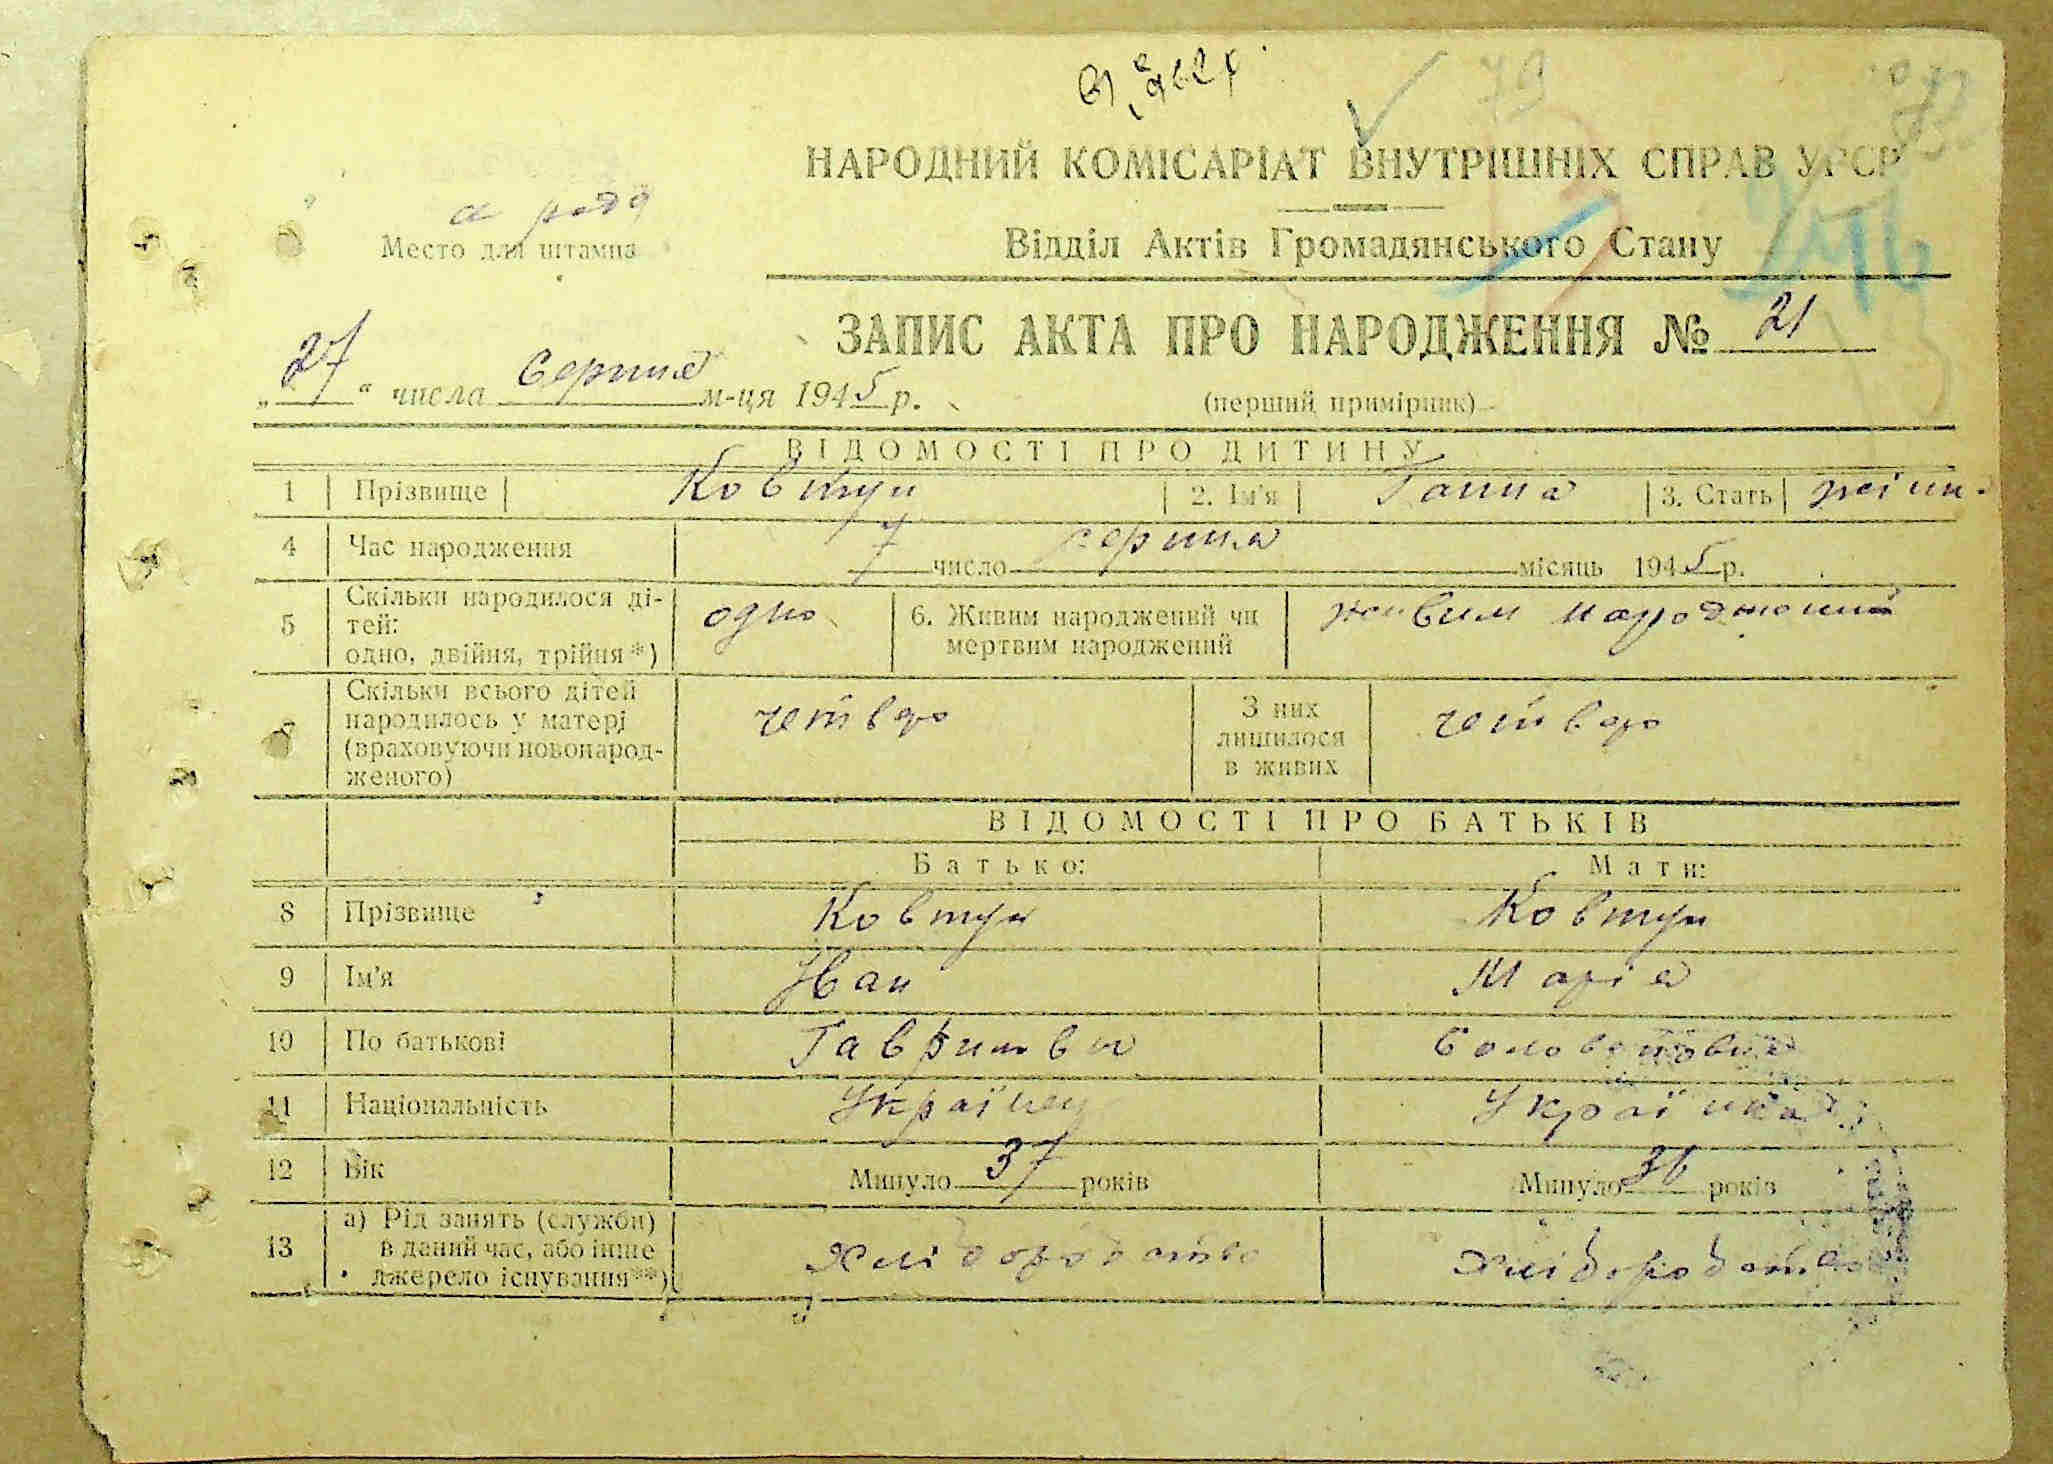 79
НАРОДНИЙ КОМІСАРІАТ ВНУТРІШНІХ СПРАВ УРСР
Место для штампа
Відділ Актів Громадянського Стану
ЗАПИС АКТА ПРО НАРОДЖЕННЯ № 21
„27“ числа Серпня м-ця 1945 р.
(перший примірник)
ВІДОМОСТІ ПРО ДИТИНУ
1 Прізвище Ковтун 2. Ім'я Ганна 3. Стать жіин.
4 Час народження 7 число серпня місяць 1945 р.
5 Скільки народилося ді-
тей:
одно, двійня, трійня*) одно
6. Живим народжений чи
мертвим народжений живим народжений
7 Скільки всього дітей
народилось у матері
(враховуючи новонарод-
женого) четверо
З них
лишилося
в живих четверо
ВІДОМОСТІ ПРО БАТЬКІВ
Батько: Мати:
8 Прізвище Ковтун Ковтун
9 Ім'я Иван Марія
10 По батькові
11 Національність Українец Українка
12 Вік Минуло 37 років Минуло 36 років
13 а) Рід занять (служби)
в даний час, або інше
джерело існування**) хліборобство хліборобство